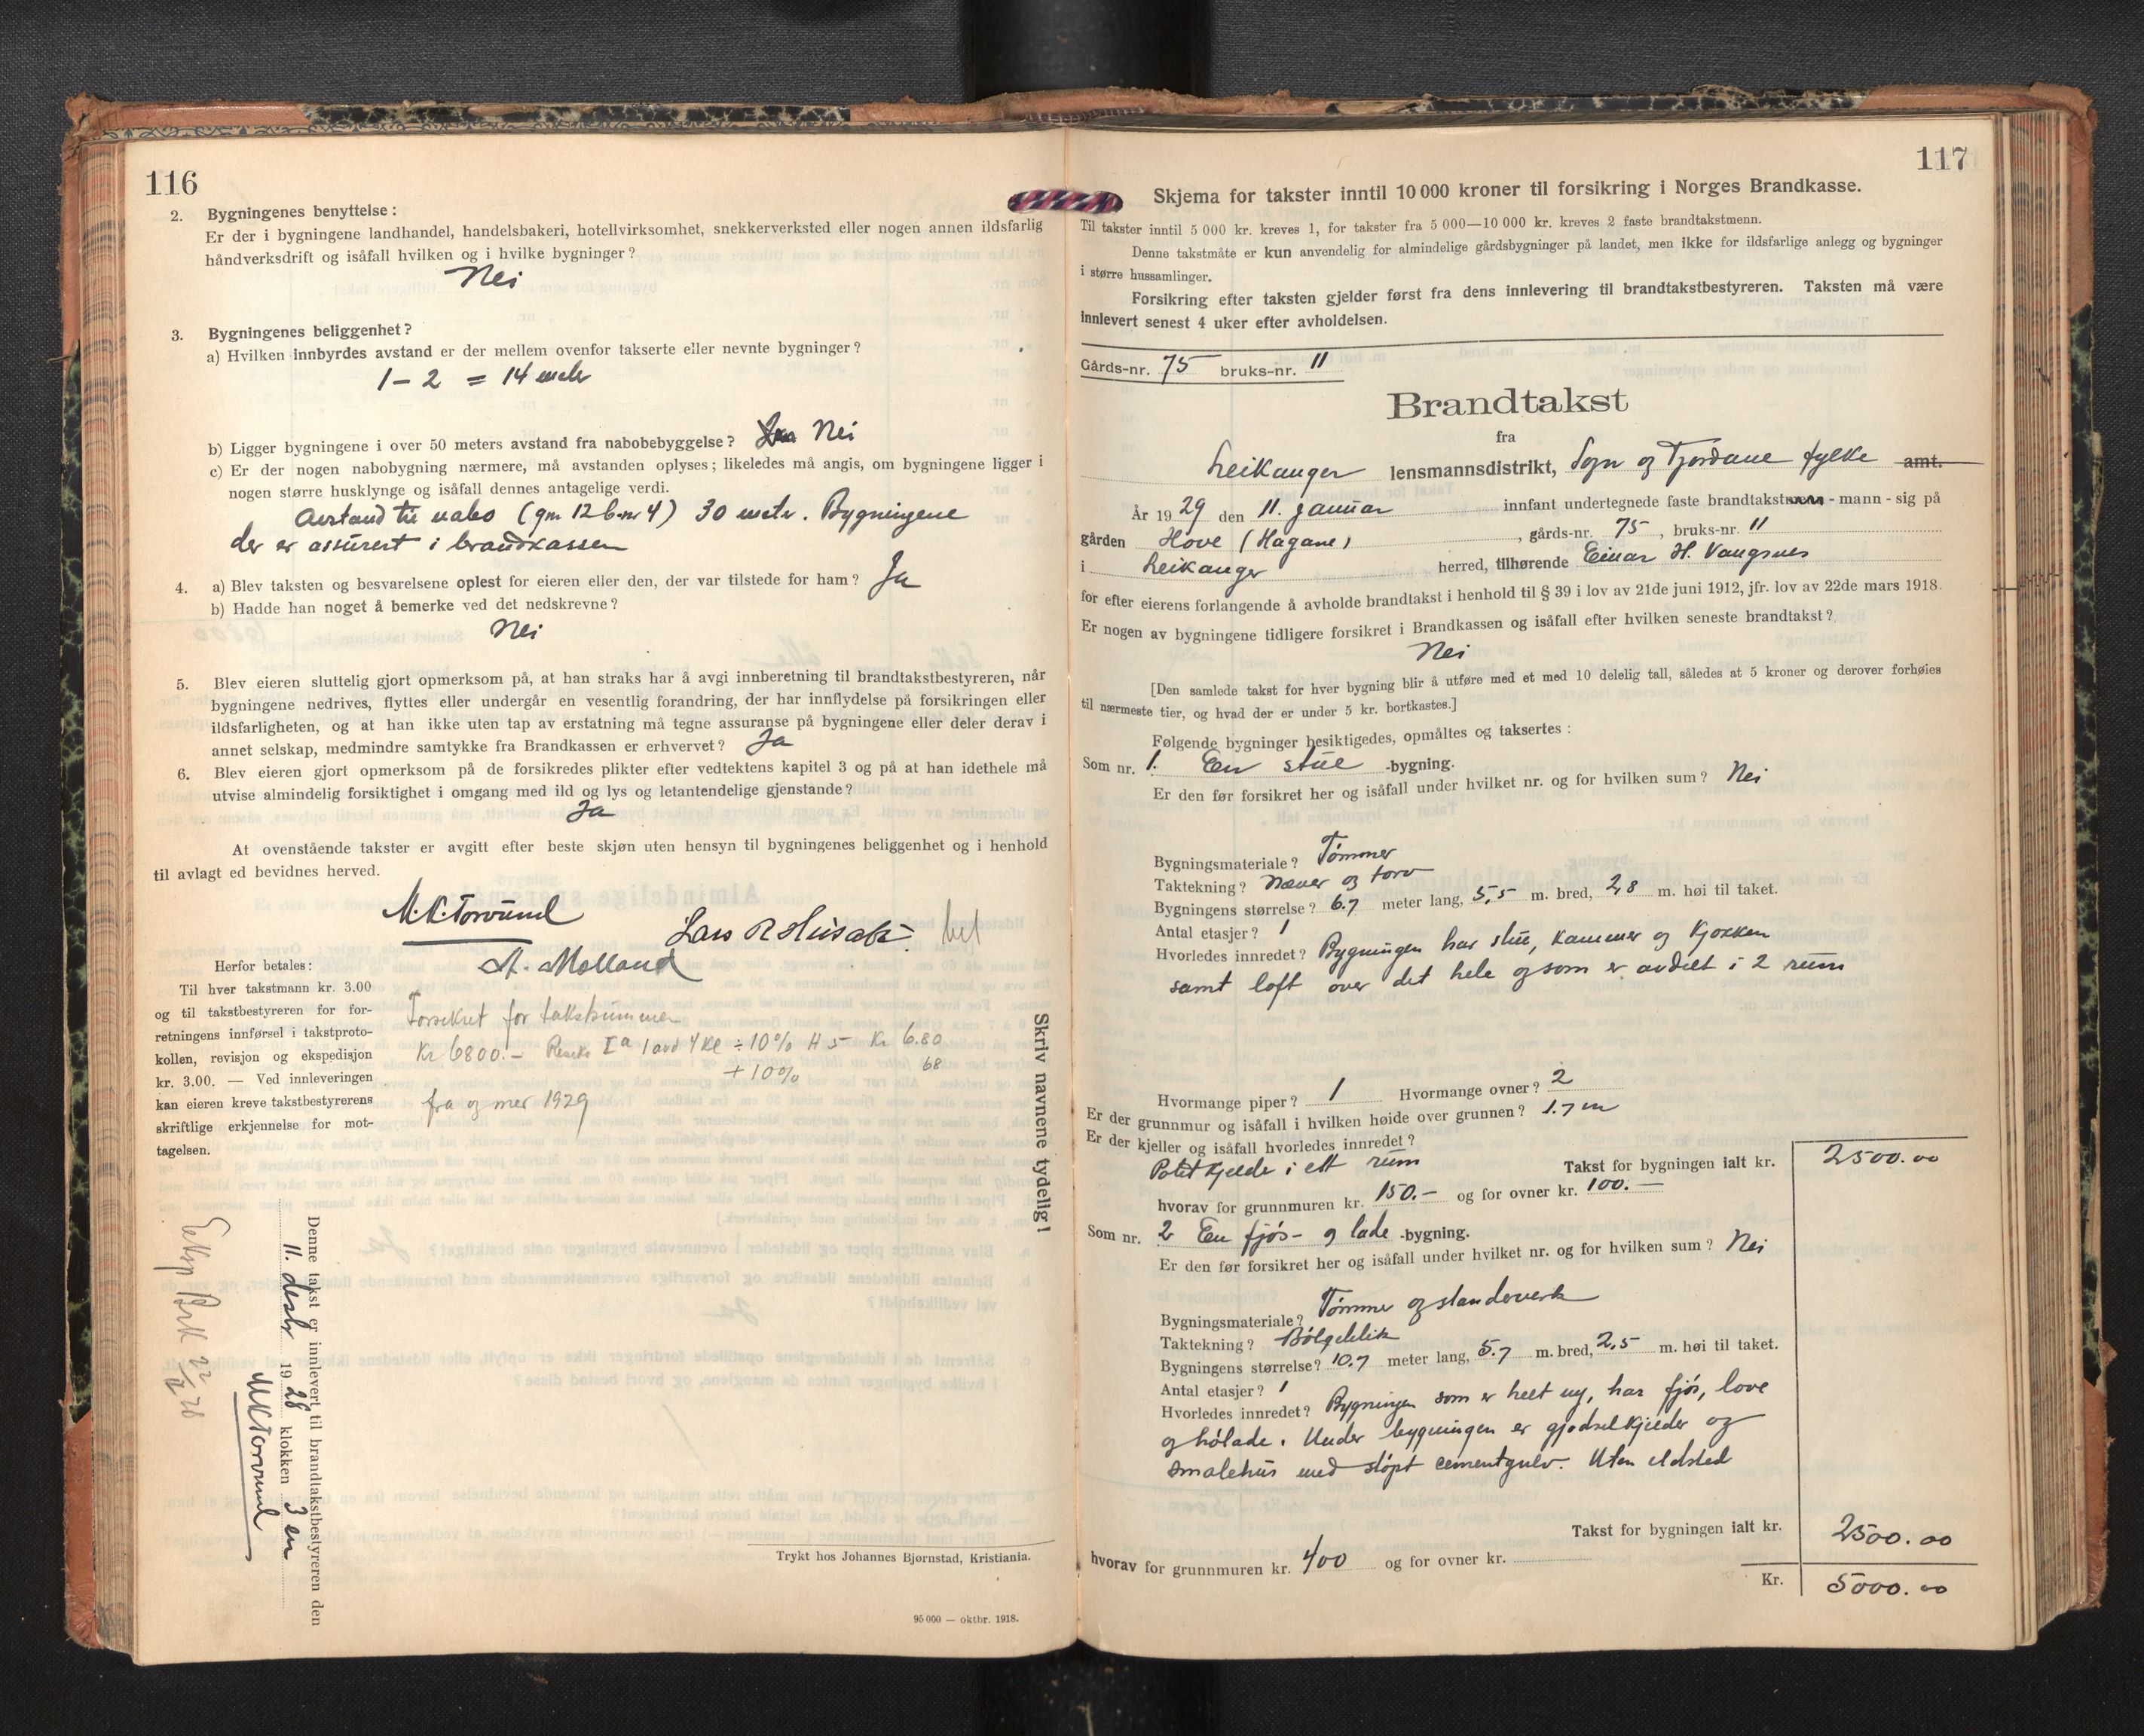 116
2. Bygningenes benyttelse :
Er der i bygningene landhandel, handelsbakeri, hotellvirksomhet, snekkerverksted eller nogen annen ildsfarlig
håndverksdrift og isåfall hvilken og i hvilke bygninger?
Nei
3. Bygningenes beliggenhet?
a) Hvilken innbyrdes avstand er der mellem ovenfor takserte eller nevnte bygninger?
1 – 2 = 14 meter
b) Ligger bygningene i over 50 meters avstand fra nabobebyggelse? Nei
c) Er der nogen nabobygning nærmere, må avstanden oplyses; likeledes må angis, om bygningene ligger i
nogen større husklynge og isåfall dennes antagelige verdi.
Avstand til nabo (gnr 12 bnr 4) 30 meter. Bygningene
der er assurert i brandkassen
4. a) Blev taksten og besvarelsene oplest for eieren eller den, der var tilstede for ham? Ja
b) Hadde han noget å bemerke ved det nedskrevne?
Nei
5. Blev eieren sluttelig gjort opmerksom på, at han straks har å avgi innberetning til brandtakstbestyreren, når
bygningene nedrives, flyttes eller undergår en vesentlig forandring, der har innflydelse på forsikringen eller
ildsfarligheten, og at han ikke uten tap av erstatning må tegne assuranse på bygningene eller deler derav i
annet selskap, medmindre samtykke fra Brandkassen er erhvervet? Ja
6. Blev eieren gjort opmerksom på de forsikredes plikter efter vedtektens kapitel 3 og på at han idethele må
utvise almindelig forsiktighet i omgang med ild og lys og letantendelige gjenstande?
Ja
At ovenstående takster er avgitt efter beste skjøn uten hensyn til bygningenes beliggenhet og i henhold
til avlagt ed bevidnes herved.
M.K. Torvund
Lars R Husabø. bet
A. Molland
Herfor betales:
Til hver takstmann kr. 3.00
og til takstbestyreren for for-
retningens innførsel i takstproto-
kollen, revisjon og ekspedisjon
kr. 3.00. — Ved innleveringen
kan eieren kreve takstbestyrerens
skriftlige erkjennelse for mot-
tagelsen.
Forsikret for takstsummen
Kr 6800.- Ia 1 avd 4 kl ÷ 10% H 5 Kr 6.80
+ 10% 68
fra og mer 1929
Skriv navnene tydelig!
Denne takst er innlevert til brandtakstbestyreren den
11. desbr 1928 klokken 3 em
MKTorvund
Trykt hos Johannes Bjørnstad, Kristiania.
95 000 — oktbr. 1918.
117
Skjema for takster inntil 10 000 kroner til forsikring i Norges Brandkasse.
Til takster inntil 5 000 kr. kreves 1, for takster fra 5 000—10 000 kr. kreves 2 faste brandtakstmenn.
Denne takstmåte er kun anvendelig for almindelige gårdsbygninger på landet, men ikke for ildsfarlige anlegg og bygninger
i større hussamlinger.
Forsikring efter taksten gjelder først fra dens innlevering til brandtakstbestyreren. Taksten må være
innlevert senest 4 uker efter avholdelsen.
Gårds-nr. 75 bruks-nr. 11
Brandtakst
fra
Leikanger lensmannsdistrikt, Sogn og Fjordane fylke amt.
År 1929 den 11. januar innfant undertegnede faste brandtakst - mann - sig på
gården Hove (Hagane), gårds-nr. 75, bruks-nr. 11
i Leikanger herred, tilhørende Einar H. Vangsnes
for efter eierens forlangende å avholde brandtakst i henhold til § 39 i lov av 21de juni 1912, jfr. lov av 22de mars 1918.
Er nogen av bygningene tidligere forsikret i Brandkassen og isåfall efter hvilken seneste brandtakst?
Nei
[Den samlede takst for hver bygning blir å utføre med et med 10 delelig tall, således at 5 kroner og derover forhøies
til nærmeste tier, og hvad der er under 5 kr. bortkastes.]
Følgende bygninger besiktigedes, opmåltes og taksertes :
Som nr. 1. En stue -bygning.
Er den før forsikret her og isåfall under hvilket nr. og for hvilken sum? Nei
Bygningsmateriale? Tømmer
Taktekning? Næver og torv
Bygningens størrelse? 6.7 meter lang, 5,5 m. bred, 2,8 m. høi til taket.
Antal etasjer? 1
Hvorledes innredet? Bygningen har stue, kammer og kjøkken
samt loft over det hele og som er avdelt i 2 rum
Hvormange piper? 1 Hvormange ovner? 2
Er der grunnmur og isåfall i hvilken høide over grunnen? 1.7 m
Er der kjeller og isåfall hvorledes innredet?
Potetkjelder i ett rum Takst for bygningen ialt kr. 2500.00
hvorav for grunnmuren kr. 150.– og for ovner kr. 100.–
Som nr. 2 En fjøs- og lade -bygning.
Er den før forsikret her og isåfall under hvilket nr. og for hvilken sum? Nei
Bygningsmateriale? Tømmer og standerverk
Taktekning? Bølgeblik
Bygningens størrelse? 10.7 meter lang, 5.7 m. bred, 2,5 m. høi til taket.
Antal etasjer? 1
Hvorledes innredet? Bygningen som er helt ny, har fjøs, love
og hølade. Under bygningen er gjødselkjelder og
smalehus med støpt cementgulv. Uten ildsted
Takst for bygningen ialt kr. 2500.00
hvorav for grunnmuren kr. 400 og for ovner kr.
Kr. 5000.00